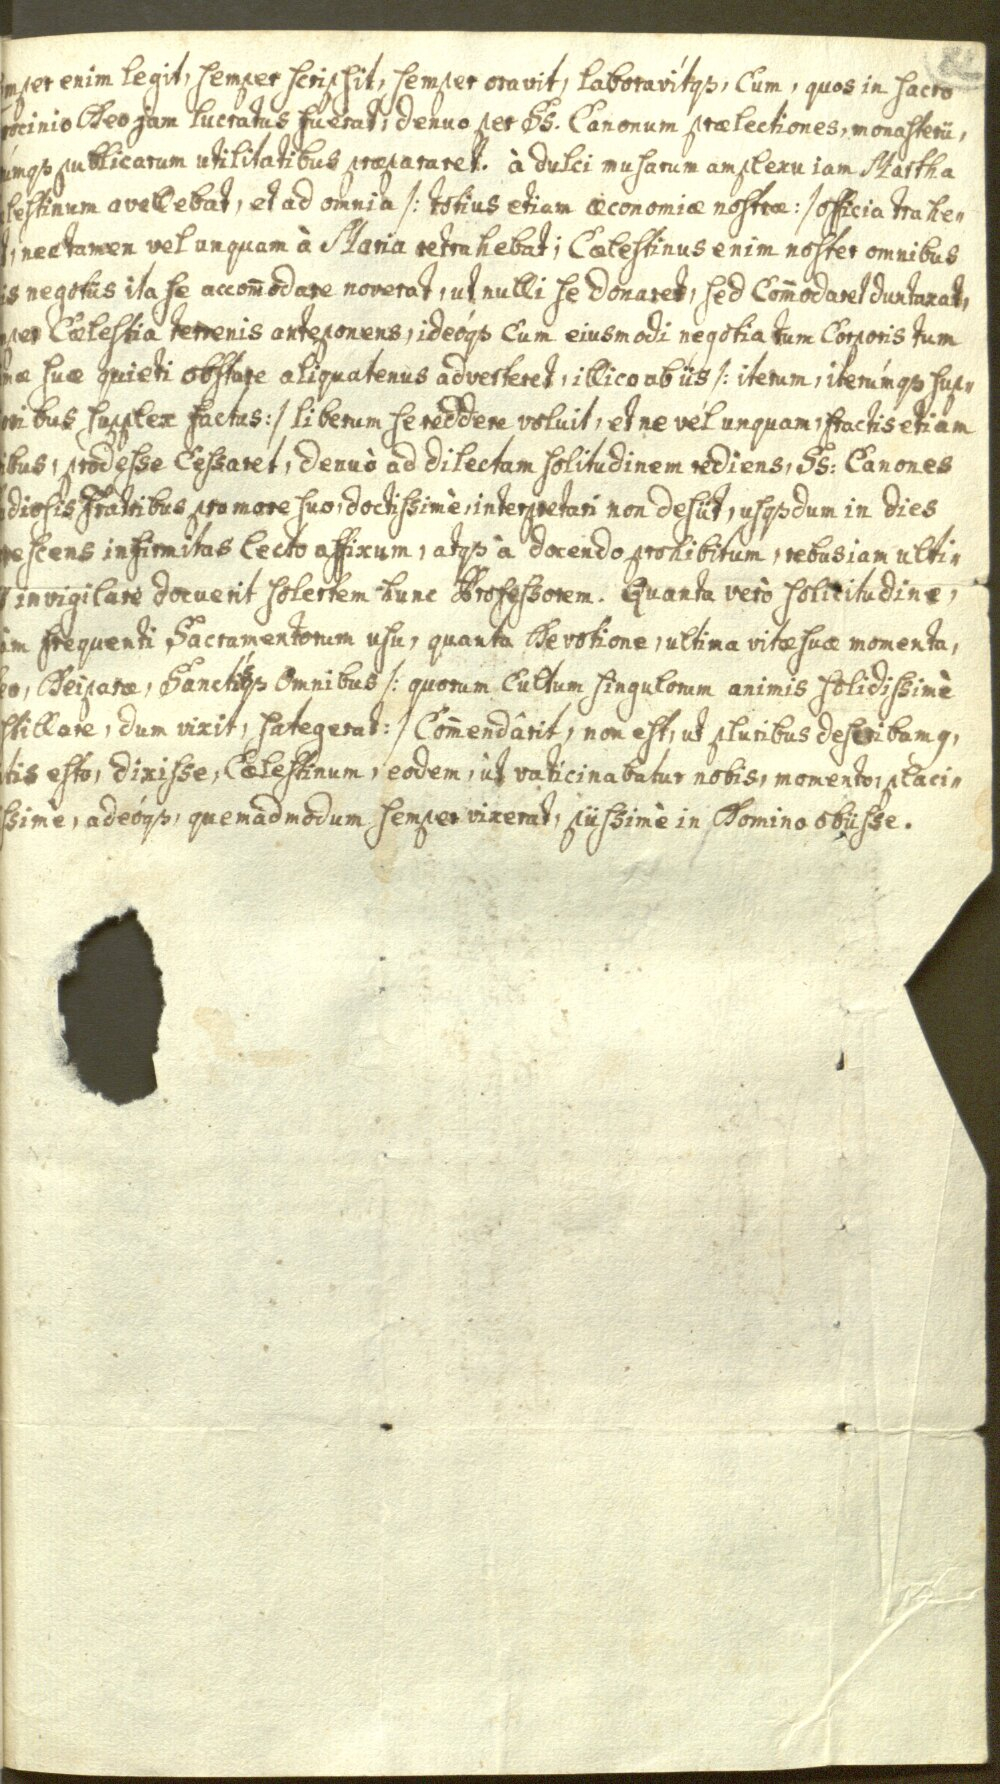 mper enim legit, semper scripsit, semper oravit, laboravitq3, Cum, quos in sacro
rocinio Deo jam lucratus fuerat, denuo per Ss. Canonum prælectiones, monasterii,
úmq3 publicarum utilitatibus præpararet. à dulci musarum amplexu iam Martha
lestinum avellebat, et ad omnia /: totius etiam œconomiæ nostræ :/ officia trahe-
t, nec tamen vel unquam à Maria retrahebat; Cœlestinus enim noster omnibus
is negotiis ita se accom̄odare noverat, ut nulli se donaret, sed Com̄odaret duntaxat,
per Cœlestia terrenis anteponens, ideóq3 Cum eiusmodi negotia tum Corporis tum
mæ suæ quieti obstare aliquatenus adverteret, illico ab iis /: iterum, iterúmq3 sup-
oribus supplex factus :/ liberum se reddere voluit, et ne vel unquam, fractis etiam
ibus, prodesse Cessaret, denuò ad dilectam solitudinem rediens, Ss: Canones
diosis Fratribus pro more suo, doctissimè, interpretari non desiit, usq3 dum in dies
rescens infirmitas lecto affixum, atq3 à docendo prohibitum, rebus iam ulti-
invigilare docuerit solertem hunc Professorem. Quanta verò solicitudine,
àm frequenti Sacramentorum usu, quanta Devotione, ultima vitæ suæ momenta,
eo, Deiparæ, Sanctisq3 Omnibus /: quorum Cultum singulorum animis solidissimè
stillare, dum vixit, sategerat :/ Com̄endârit, non est, ut pluribus describamq,
tis esto, dixisse, Cœlestinum, eodem, ut vaticinabatur nobis, momento, placi-
ssimè, adeóq3, quemadmodum semper vixerat, piissimè in Domino obiisse.